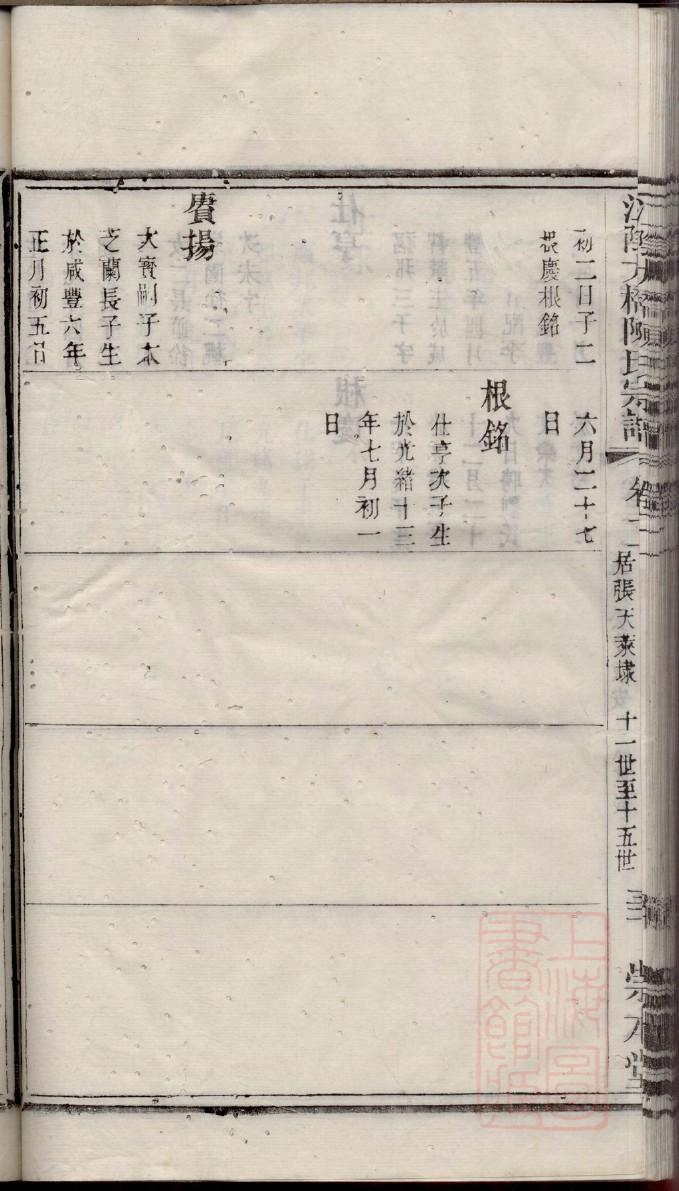 初二日子二
根慶根銘
賡揚
大賓嗣子本
芝蘭長子生
於咸豐六年
正月初五日
六月二十七
日
根銘
仕亨次子生
於光緒十三
年七月初一
日
陽氏宗譜
卷二
居張天萊埭
十一世至十五世
崇本堂
上海圖
書館藏